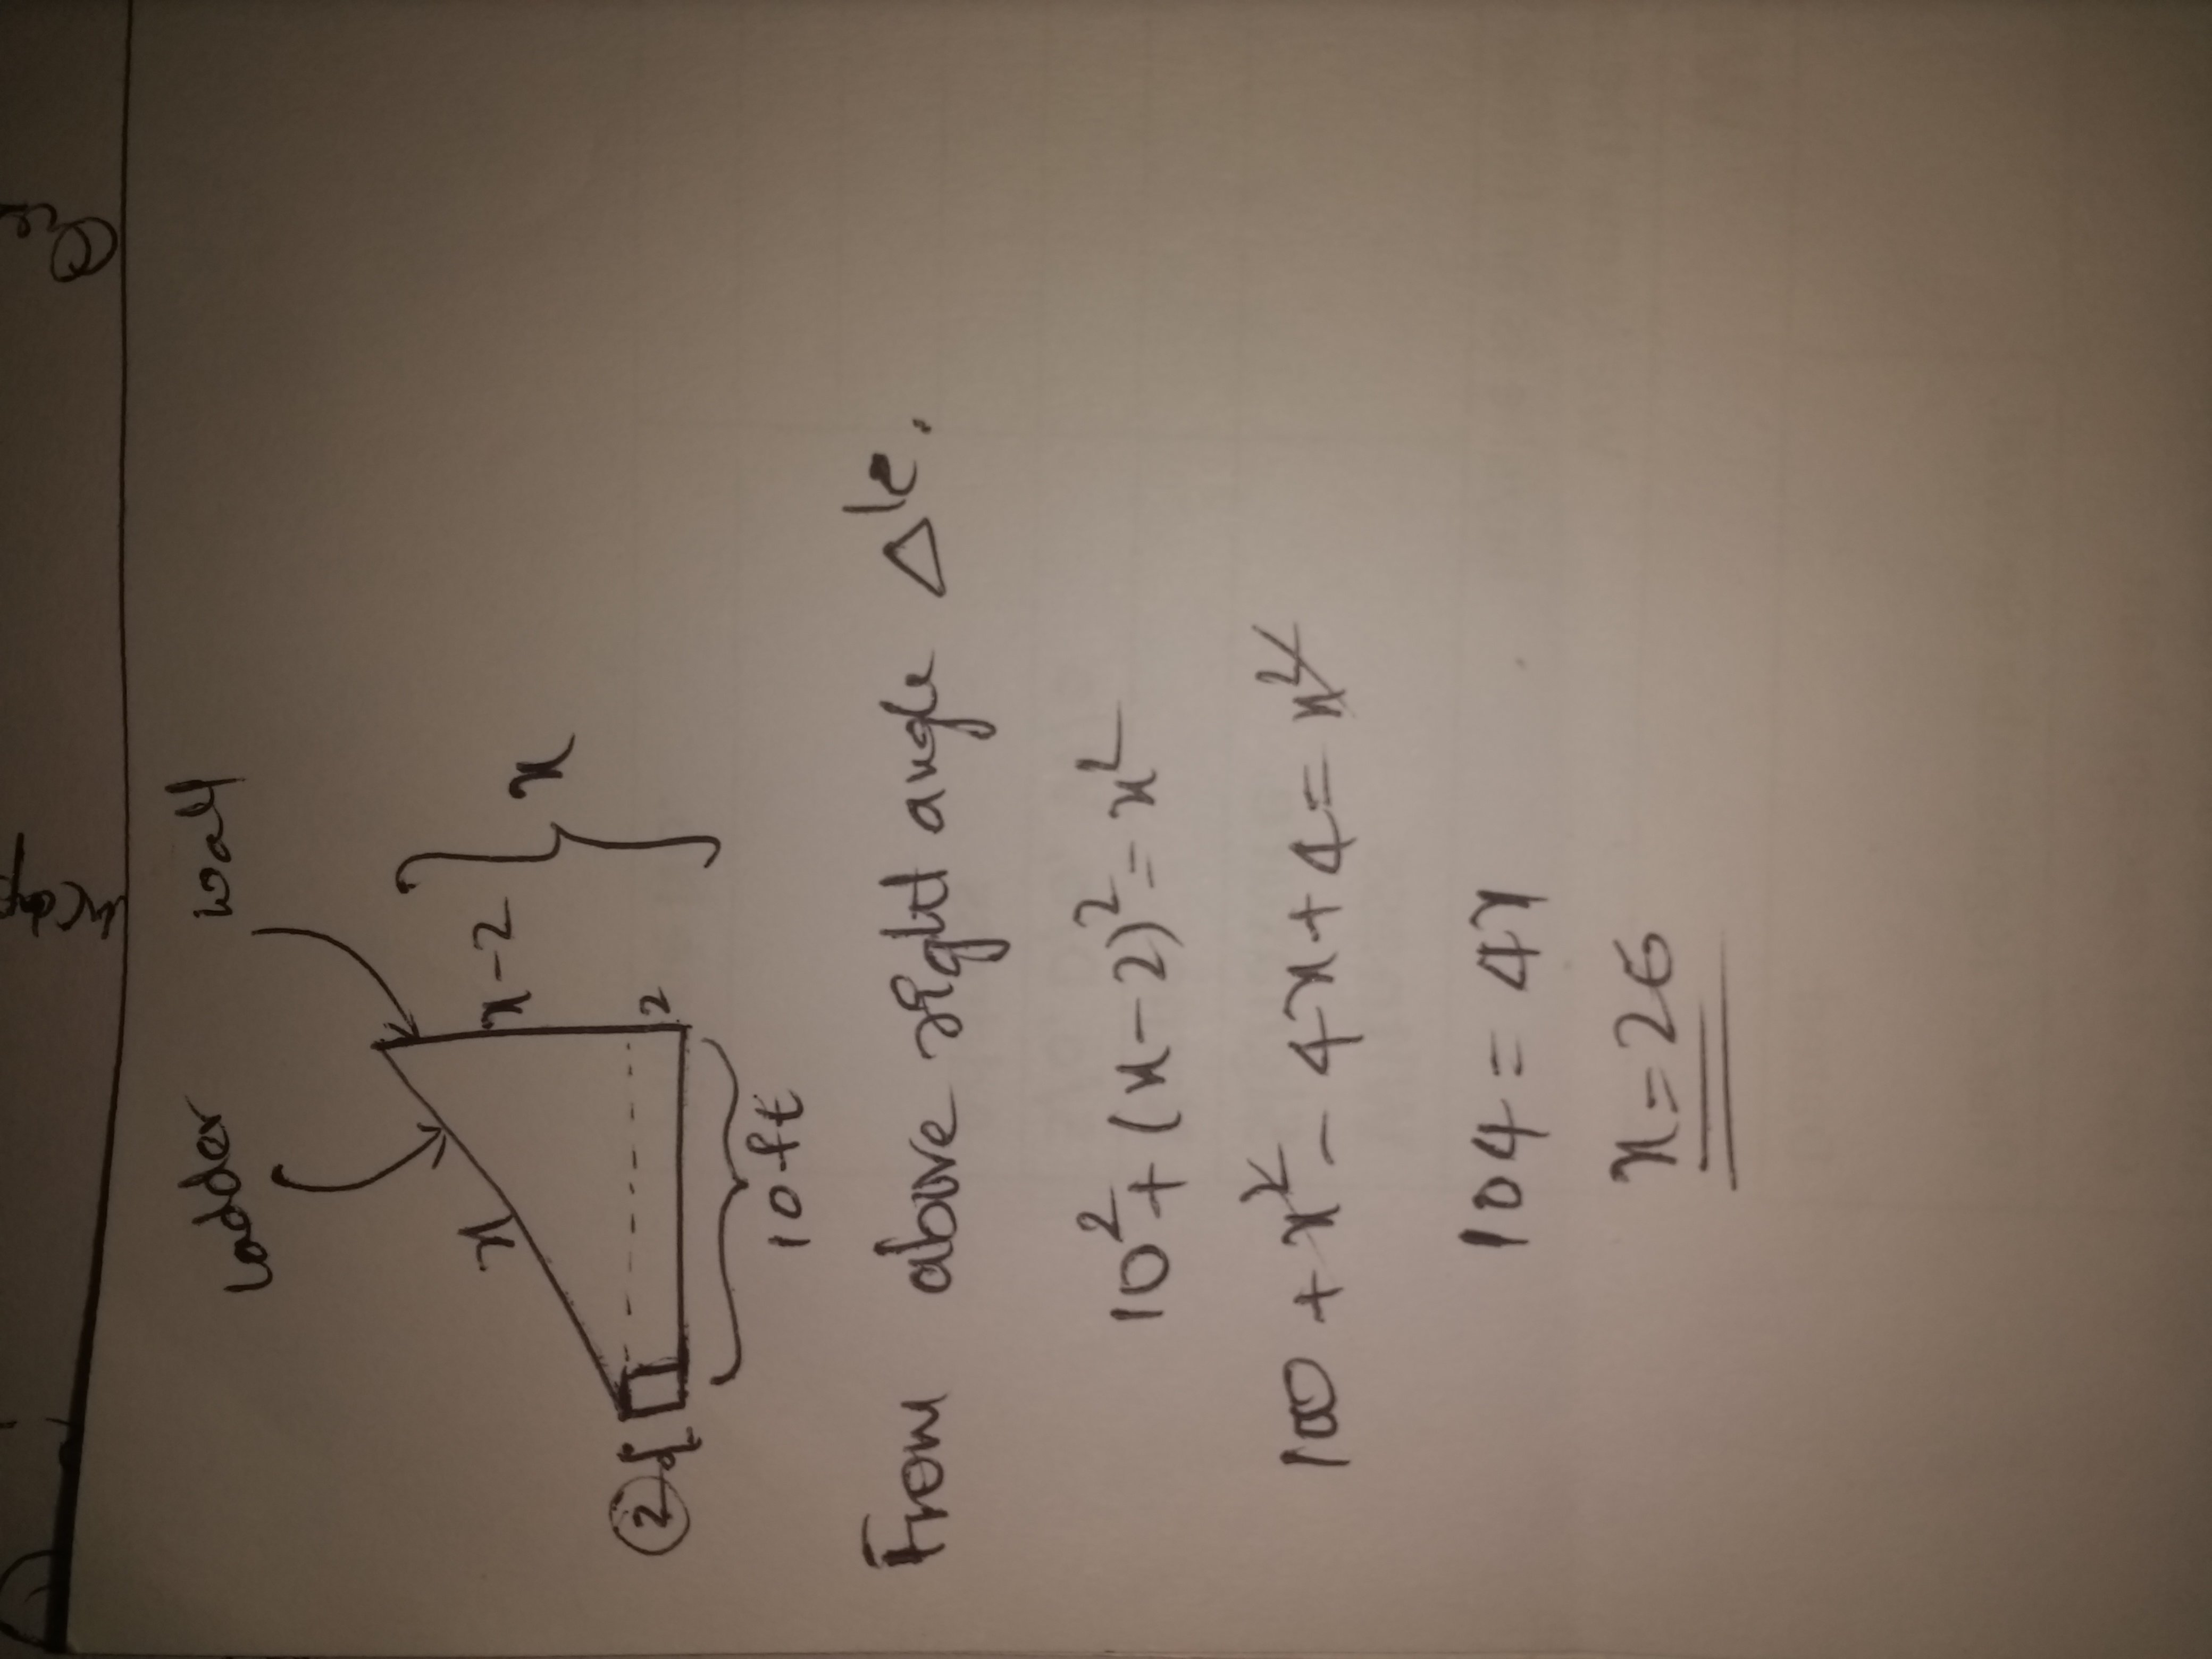 Ladder wall
x x-2 x
② 2
10 ft
From above right angle Δle.
10² + (x-2)² = x²
100 + x² - 4x + 4 = x²
104 = 4x
x = 26